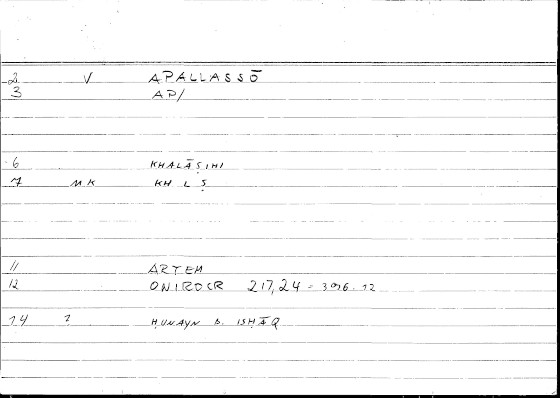 2 V APALLASSŌ
3 AP/
6 KHALĀṢIHI
7 MK KH L Ṣ
11 ARTEM
12 ONIROCR 217,24 = 396.12
14 ? ḤUNAYN B. ISḤĀQ